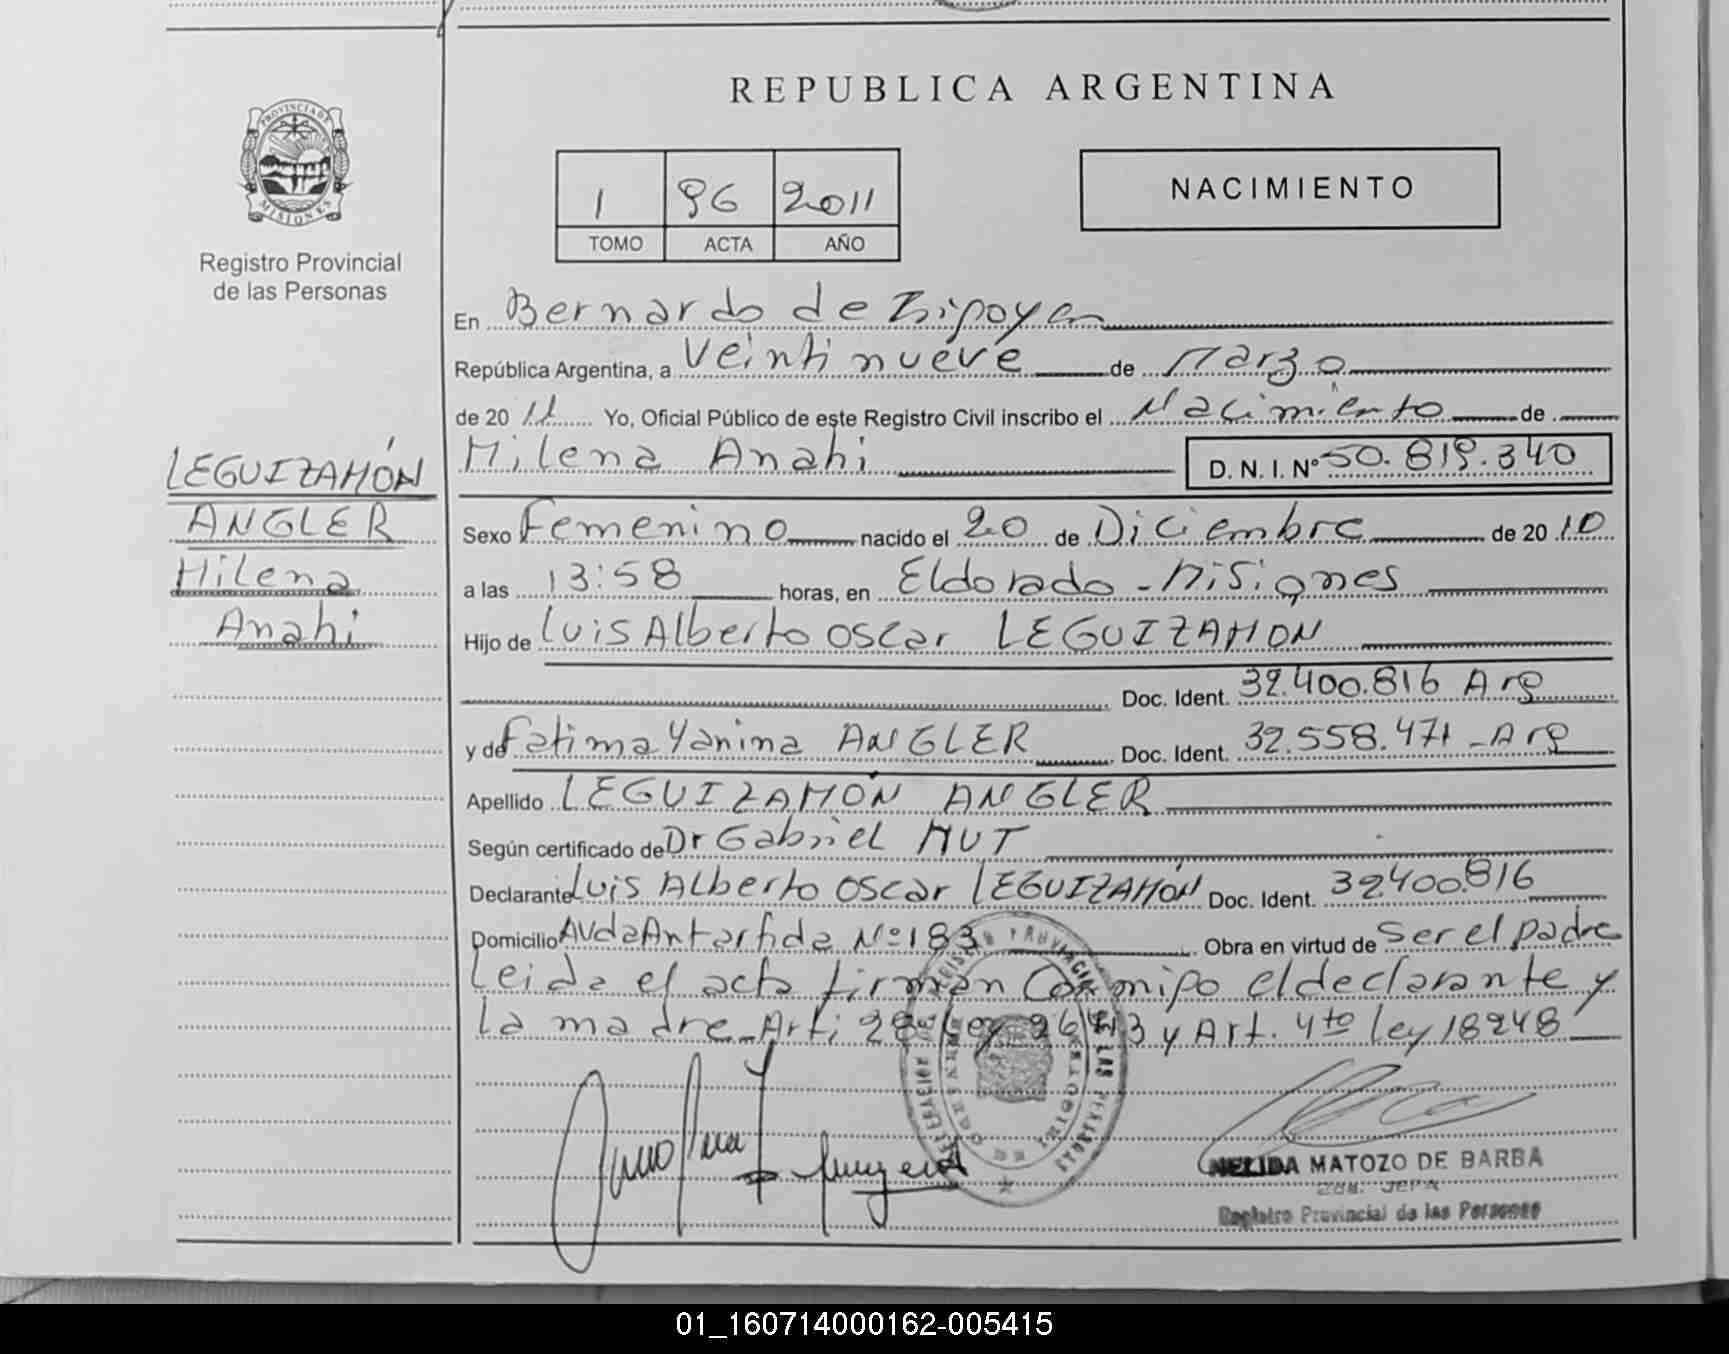 REPUBLICA ARGENTINA
PROVINCIA DE
MISIONES
Registro Provincial
de las Personas
1 96 2011
TOMO ACTA AÑO
NACIMIENTO
En Bernardo de Irigoyen
República Argentina, a Veintinueve de Marzo
de 20 11 Yo, Oficial Público de este Registro Civil inscribo el Nacimiento de
Milena Anahi D. N. I. Nº 50.819.340
LEGUIZAMÓN
ANGLER
Milena
Anahi
Sexo Femenino nacido el 20 de Diciembre de 20 10
a las 13:58 horas, en Eldorado - Misiones
Hijo de Luis Alberto Oscar LEGUIZAMON
Doc. Ident. 32.400.816 Arg
y de Fatima Yanina ANGLER Doc. Ident. 32.558.471 - Arg
Apellido LEGUIZAMÓN ANGLER
Según certificado de Dr Gabriel MUT
Declarante Luis Alberto Oscar LEGUIZAMÓN Doc. Ident. 32400.816
Domicilio Avda Antartida Nº 183 Obra en virtud de Ser el padre
Leida el acta firman Conmigo el declarante y
la madre - Arti 28 Ley 26413 y Art. 4to Ley 18248
NELIDA MATOZO DE BARBA
Registro Provincial de las Personas
01_160714000162-005415